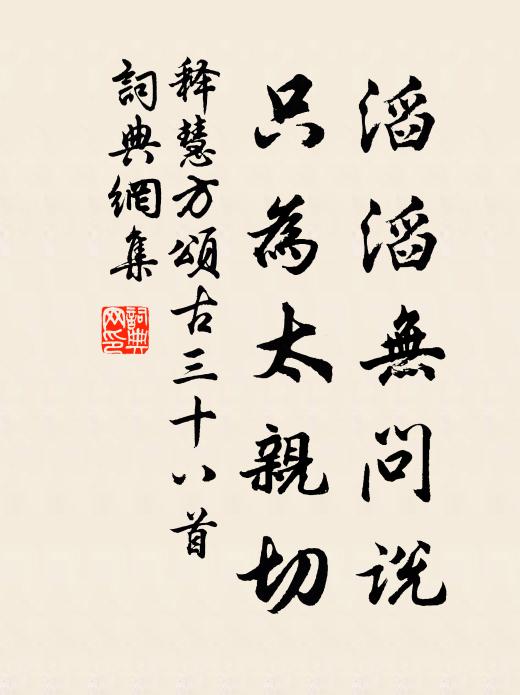 滔滔無問説
只為太親切
释慧方頌古三十八首
詞典網集
詞典网印